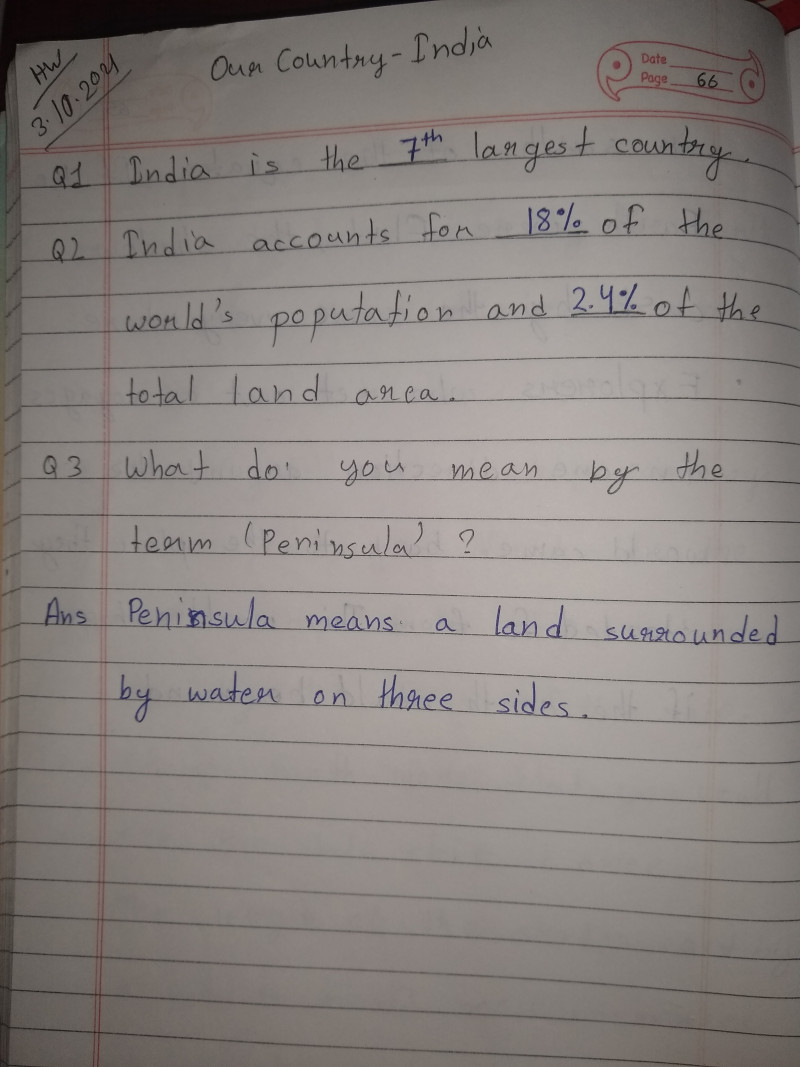 HW
3.10.2021
Our Country - India
Date
Page 66
Q1 India is the 7th largest country.
Q2 India accounts for 18% of the
world's population and 2.4% of the
total land area.
Q3 What do you mean by the
team (Peninsula) ?
Ans Peninsula means a land surrounded
by water on three sides.